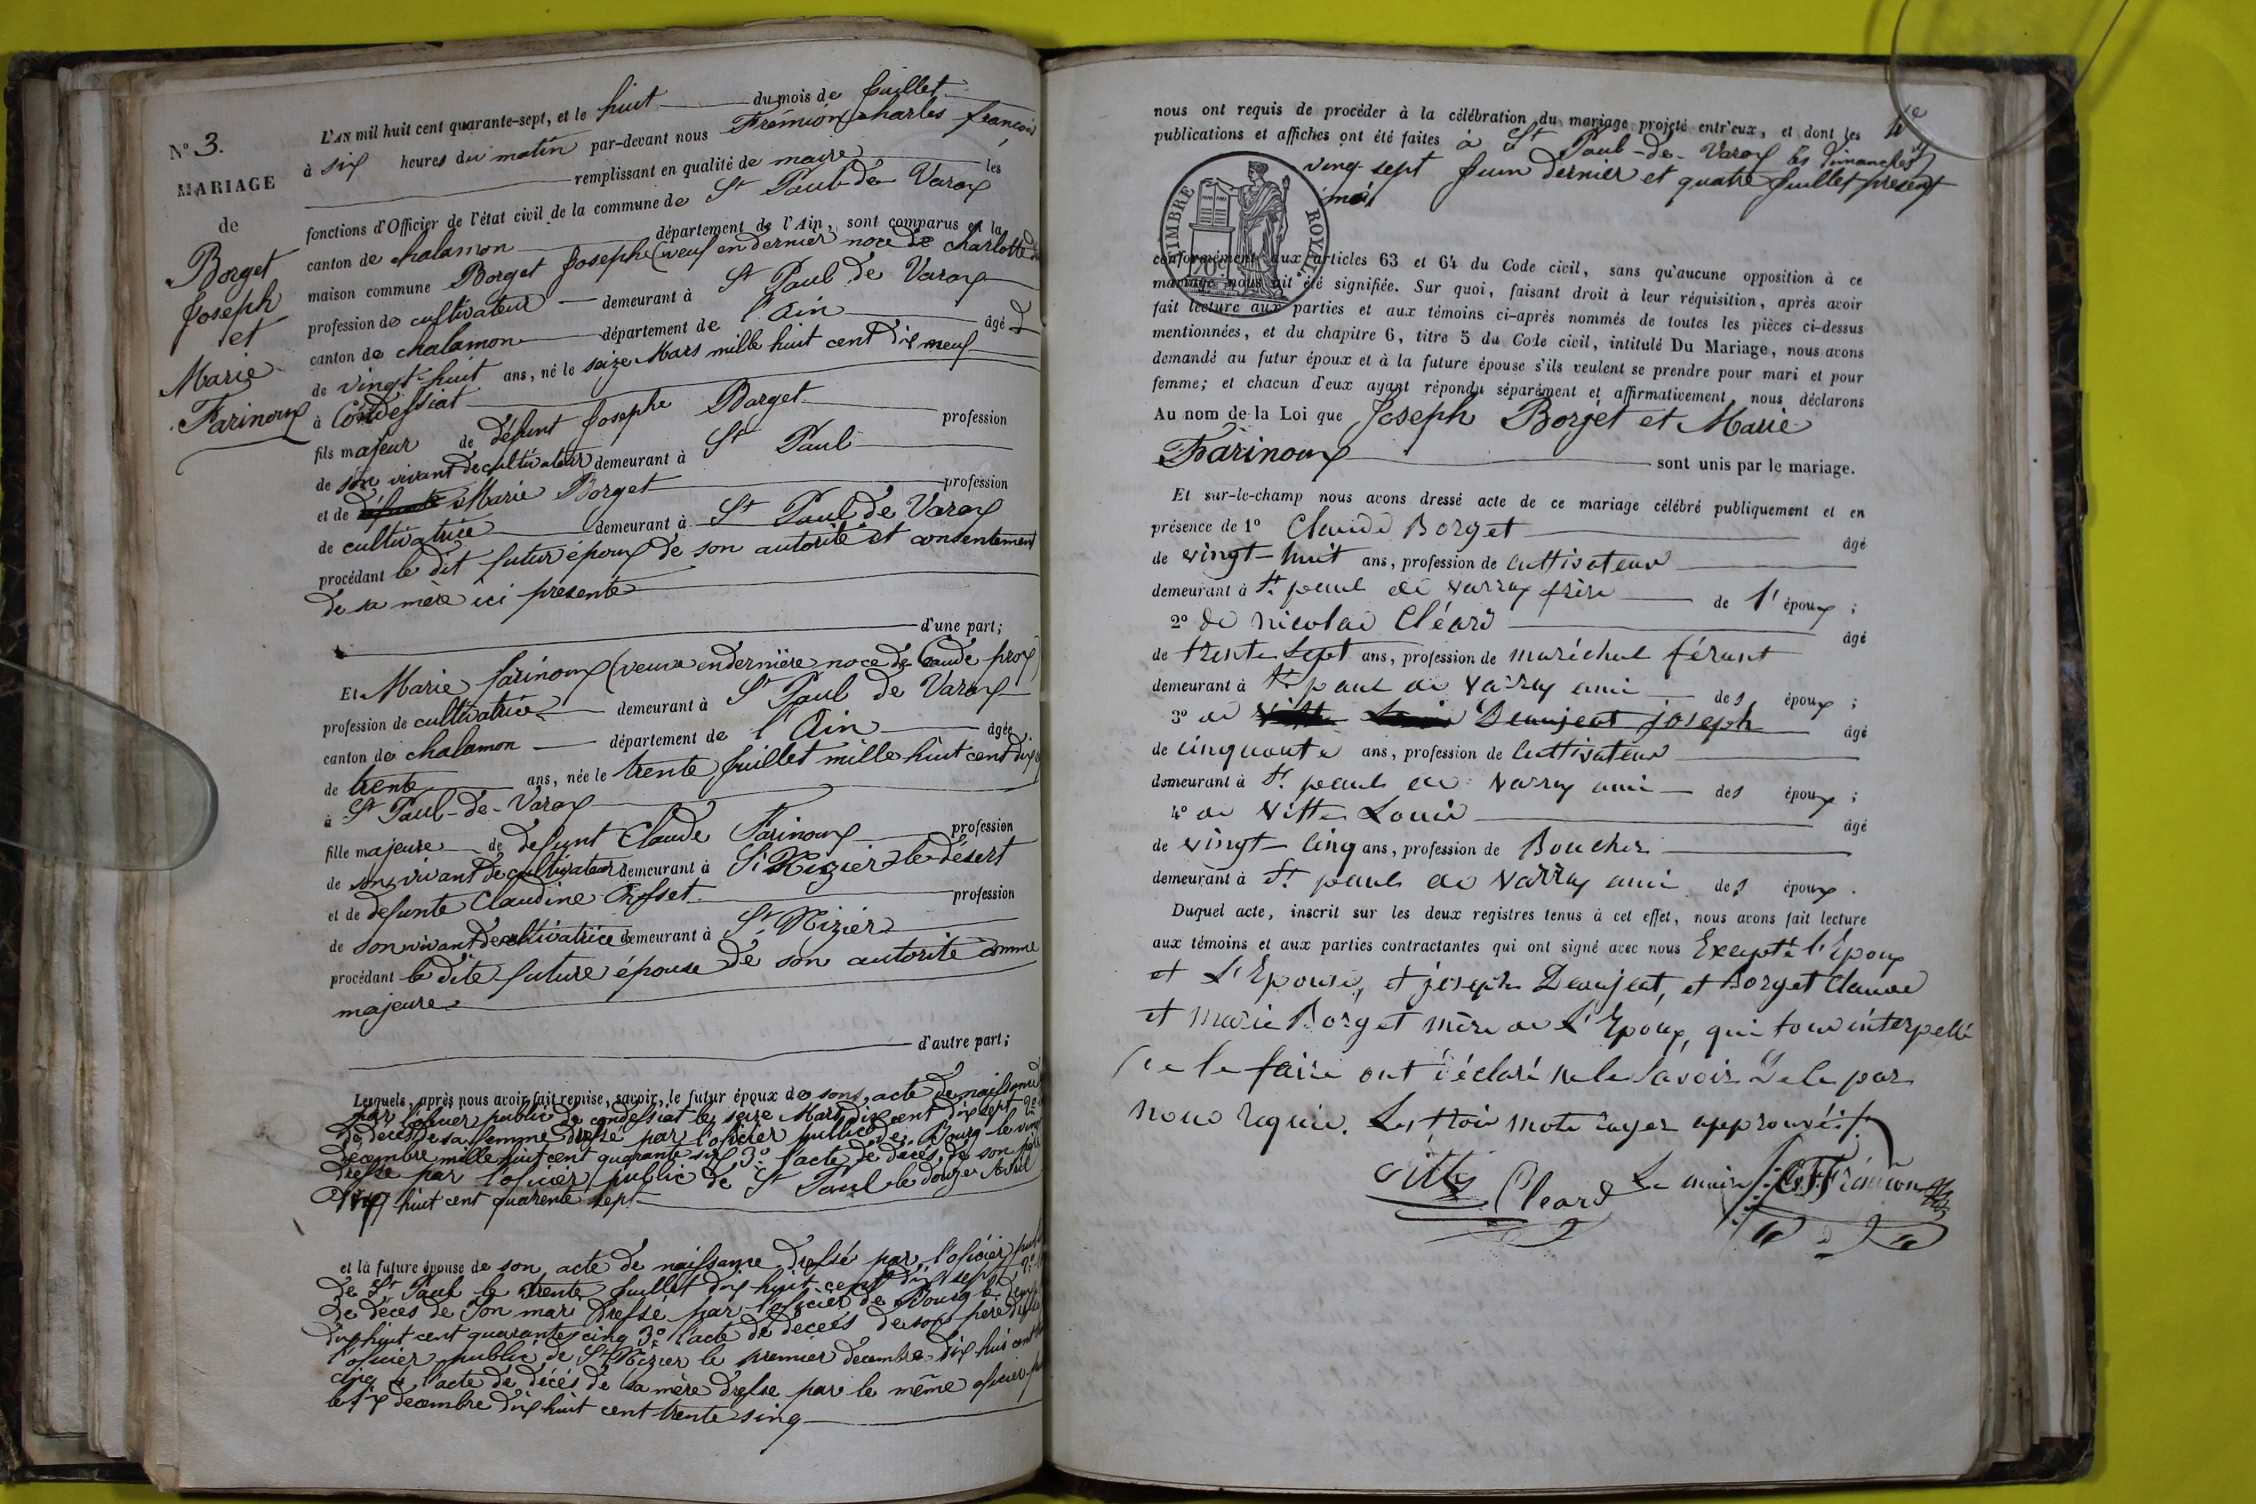 N° 3.
MARIAGE
de
Borget
Joseph
et
Marie
Farinoux
L'AN mil huit cent quarante-sept, et le huit du mois de Juillet
à six heures du matin par-devant nous Frémion Charles françois
remplissant en qualité de maire les
fonctions d'Officier de l'état civil de la commune de St Paul de Varax
canton de chalamon département de l'Ain, sont comparus en la
maison commune Borget Josephe (veuf en dernier noce de charlotte
profession de cultivateur demeurant à St Paul de Varax
canton de chalamon département de l'Ain âgé
de vingt-huit ans, né le seize Mars mille huit cent dix neuf
à Condessiat
fils majeur de défunt Josephe Borget profession
de son vivant de cultivateur demeurant à St Paul
et de Marie Borget profession
de cultivatrice demeurant à St Paul de Varax
procédant le dit futur époux de son autorité et consentement
de sa mère ici presente
d'une part;
Et Marie farinoux (veuve en dernière noce de Claude prox)
profession de cultivatrice demeurant à St Paul de Varax
canton de chalamon département de l'Ain âgée
de trente ans, née le trente Juillet mille huit cent dix
à St Paul-de-Varax
fille majeure de defunt Claude Farinoux profession
de son vivant de cultivateur demeurant à St Nizier le désert
et de defunte Claudine profession
de son vivant de cultivatrice demeurant à St Nizier
procédant la dite future épouse de son autorité comme
majeure
d'autre part;
Lesquels, après nous avoir fait remise, savoir, le futur époux de sons, acte de naissance
par l'oficier public de condessiat le seize Mars dix cent dix sept 2°
de décès de sa femme dressé par l'oficier public de Bourg le
decembre mille huit cent quarante six 3° l'acte de décès de son père
dressé par l'oficier public de St Paul le douze Avril
huit cent quarente sept
et la future épouse de son acte de naissance dressé par l'oficier
de St Paul le trente Juillet dix huit cent dix sept 2°
de décès de son mari dressé par l'oficier de Bourg le
dix huit cent quarante cinq 3° l'acte de décès de son père
l'oficier public de St Nizier le premier decembre dix huit cent
cinq l'acte de décès de sa mère dressé par le même oficier
le decembre dix huit cent trente sinq
nous ont requis de procéder à la célébration du mariage projeté entr'eux, et dont les
publications et affiches ont été faites à St Paul-de-Varax les dimanches
ving-sept Juin dernier et quatre Juillet présent
TIMBRE ROYAL
conformément aux articles 63 et 64 du Code civil, sans qu'aucune opposition à ce
mariage nous ait été signifiée. Sur quoi, faisant droit à leur réquisition, après avoir
fait lecture aux parties et aux témoins ci-après nommés de toutes les pièces ci-dessus
mentionnées, et du chapitre 6, titre 5 du Code civil, intitulé Du Mariage, nous avons
demandé au futur époux et à la future épouse s'ils veulent se prendre pour mari et pour
femme; et chacun d'eux ayant répondu séparément et affirmativement, nous déclarons
Au nom de la Loi que Joseph Borget et Marie
Farinoux sont unis par le mariage.
Et sur-le-champ nous avons dressé acte de ce mariage célébré publiquement et en
présence de 1° Claude Borget âgé
de vingt-huit ans, profession de cultivateur
demeurant à St paul de varrax frère de l'époux;
2° de nicolas Cléard âgé
de trente sept ans, profession de maréchal férant
demeurant à St paul de varrax ami des époux;
3° de Beaujeat joseph âgé
de cinquante ans, profession de cultivateur
demeurant à St paul de varrax ami des époux;
4° de Vitte Louis âgé
de vingt-cinq ans, profession de Boucher
demeurant à St paul de varrax ami des époux.
Duquel acte, inscrit sur les deux registres tenus à cet effet, nous avons fait lecture
aux témoins et aux parties contractantes qui ont signé avec nous Excepté l'époux
et l'Epouse, et joseph Beaujeat, et Borget Claude
et marie Borget mère de l'Epoux, qui tous interpellé
de le faire ont déclaré ne le savoir de ce par
nous requis. Les trois mots rayés approuvés
Vitte Cleard Le maire Frémion